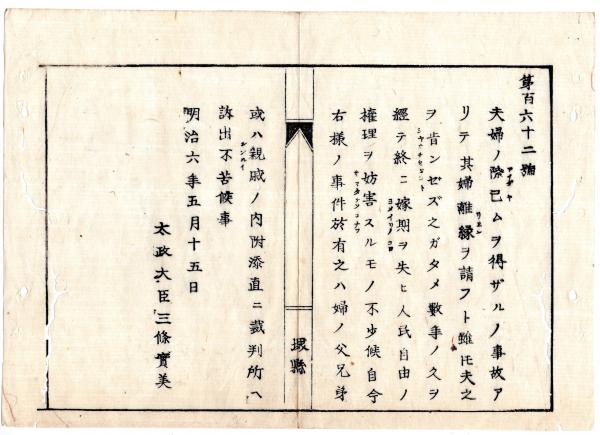 第百六十二號
夫婦ノ際已ムヲ得ザルノ事故ア
リテ其婦離縁ヲ請フト雖𪜈夫之
ヲ肯ンゼズ之ガタメ數年ノ久ヲ
經テ終ニ嫁期ヲ失ヒ人民自由ノ
權理ヲ妨害スルモノ不少候自今
右樣ノ事件於有之ハ婦ノ父兄弟
堺縣
或ハ親戚ノ内附添直ニ裁判所ヘ
訴出不苦候事
明治六年五月十五日
太政大臣三條實美